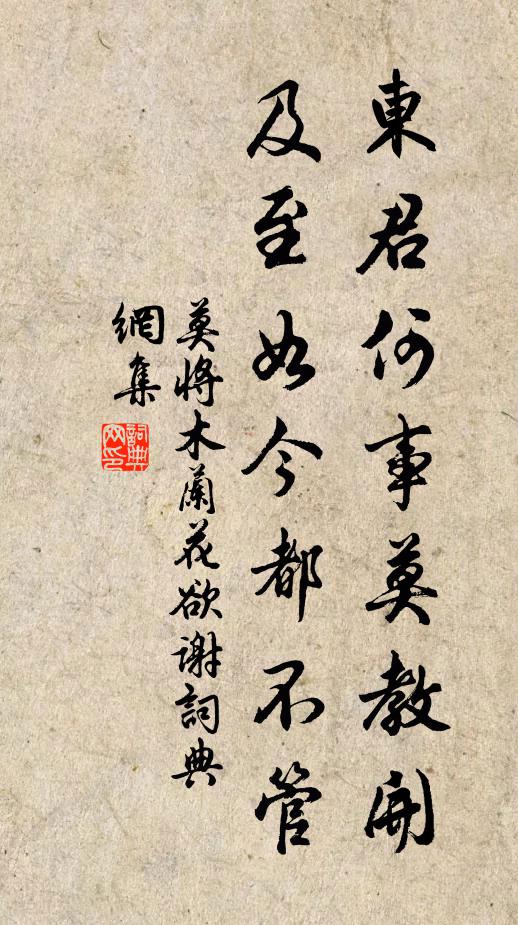 東君何事莫教開
及至如今都不管
莫將木蘭花欲謝詞典
網集
詞典
网印